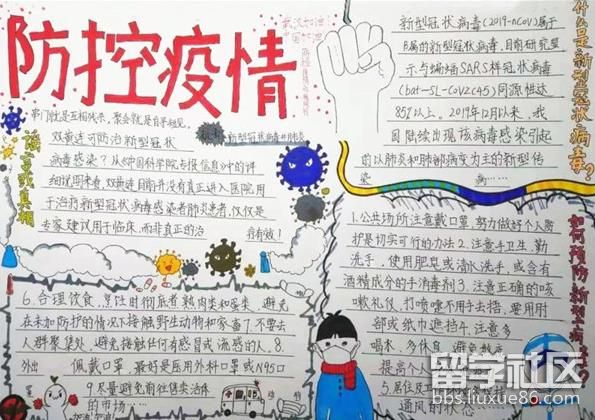 防控疫情
武汉加油!
中国加油
串门就是互相残杀,聚会就是自寻短见.
双黄连可防治新型冠状
病毒感染?从《中国科学院专报信息》中的详
细说明来看,双黄连目前并没有真正进入医院用
于治疗新型冠状病毒感染者肺炎患者,仅仅是
专家建议用于临床,而非真正的治
疗有效!
新型冠状病毒肺炎
什么是新型冠状病毒?
新型冠状病毒(2019-nCoV)属于
B属的新型冠状病毒,目前研究显
示与蝙蝠SARS样冠状病毒
(bat-SL-CoVZC45)同源性达
85%以上。2019年12月以来,我
国陆续出现该病毒感染引起
的以肺炎和肺部病变为主的新型传
染病……
如何预防新型病毒?
1.公共场所注意戴口罩,努力做好个人防
护是切实可行的办法2、注意手卫生,勤
洗手,使用肥皂或清水洗手,或含有
酒精成分的手消毒剂3、注意正确的咳
嗽礼仪,打喷嚏不用手去捂,要用肘
部或纸巾遮挡4、注意多
喝水,多休息,避免
提高个人
5.居住
通风的状态
6、合理饮食,烹饪时彻底煮熟肉类和蛋类,避免
在未加防护的情况下接触野生动物和家畜7、不要去
人群聚集处,避免接触任何有感冒或流感的人、8、
外出佩戴口罩,最好是医用外科口罩或N95口
罩9尽量避免前往售卖活体
的市场……
留学社区
bbs.liuxue86.com